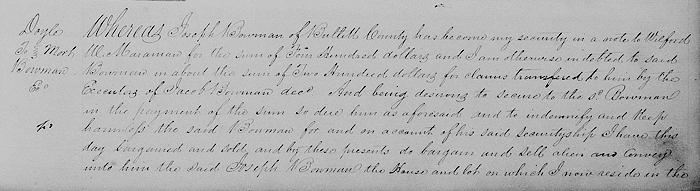 Doyle
To } Mort
Bowman
Whereas Joseph Bowman of Bullitt County has become my security in a note to Wilford
W. Maraman for the sum of Four Hundred dollars and I am otherwise indebted to said
Bowman in about the sum of Two Hundred dollars for claims transfered to him by the
Executors of Jacob Bowman decd. And being desirous to secure to the sd. Bowman
in the payment of the sum so due him as aforesaid and to indemnify and keep
harmless the said Bowman for and on account of his said securityship I have this
day bargained and sold, and by these presents do bargain and sell alien and convey
unto him the said Joseph Bowman the House and lot on which I now reside in the